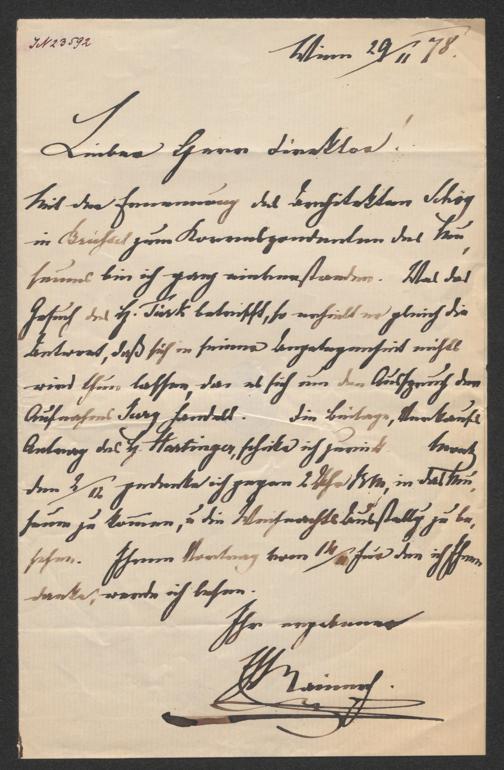 IN 23592
Wien 29/11 78.
Lieber Herr Direktor!
Mit der Ernennung des Architekten Schoy
in Brüssel zum Korrespondenten des Mu,
seums bin ich ganz einverstanden. Was das
Gesuch des H. Türk betrifft, so erhielt er gleich die
Antwort, daß sich in seiner Angelegenheit nichts
wird thun lassen, da es sich um den Ausspruch der
Aufnahms Jury handelt. Die Beilage, Verkaufs
Antrag des H. Hartinger, schicke ich zurück.
den 2/12 gedenke ich gegen 2 Uhr NM, in das Mu,
seum zu kommen, u die Weihnachts Ausstellg zu be,
sehen. Ihren Vortrag vom für den ich Ihnen
danke, werde ich lesen.
Ihr ergebener
EH Rainer